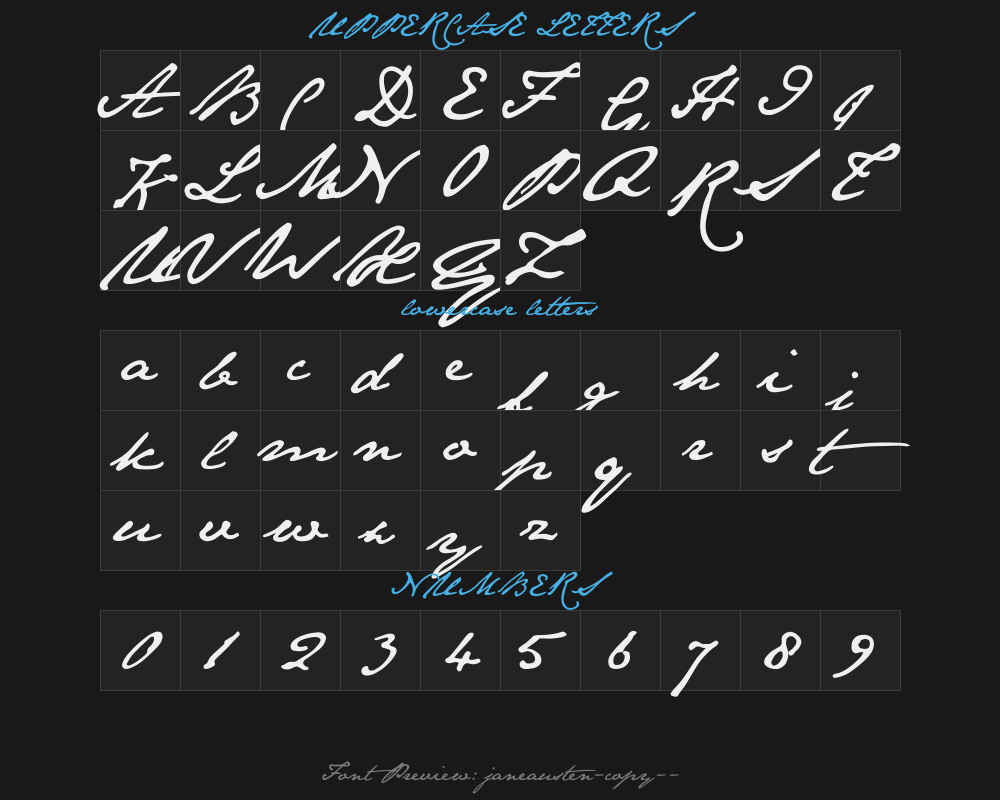 UPPERCASE LETTERS
A B C D E F G H I J
K L M N O P Q R S T
U V W X Y Z
lowercase letters
a b c d e f g h i j
k l m n o p q r s t
u v w x y z
NUMBERS
0 1 2 3 4 5 6 7 8 9
Font Preview: janeausten-copy--